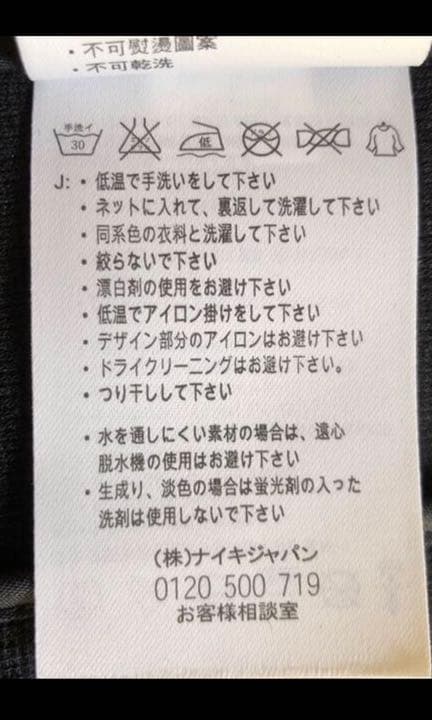 ・不可熨燙圖案
・不可乾洗
手洗イ
30
低
J:・低温で手洗いをして下さい
・ネットに入れて、裏返して洗濯して下さい
・同系色の衣料と洗濯して下さい
・絞らないで下さい
・漂白剤の使用をお避け下さい
・低温でアイロン掛けをして下さい
・デザイン部分のアイロンはお避け下さい
・ドライクリーニングはお避け下さい。
・つり干しして下さい
・水を通しにくい素材の場合は、遠心
脱水機の使用はお避け下さい
・生成り、淡色の場合は蛍光剤の入った
洗剤は使用しないで下さい
(株)ナイキジャパン
0120 500 719
お客様相談室